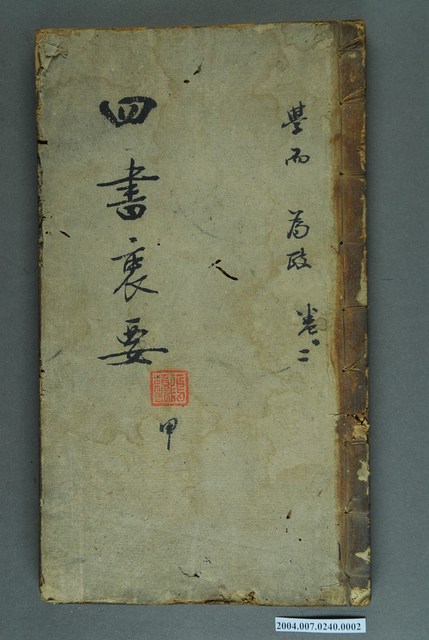 學而 為政 卷二
四書 要
甲
2004.007.0240.0002